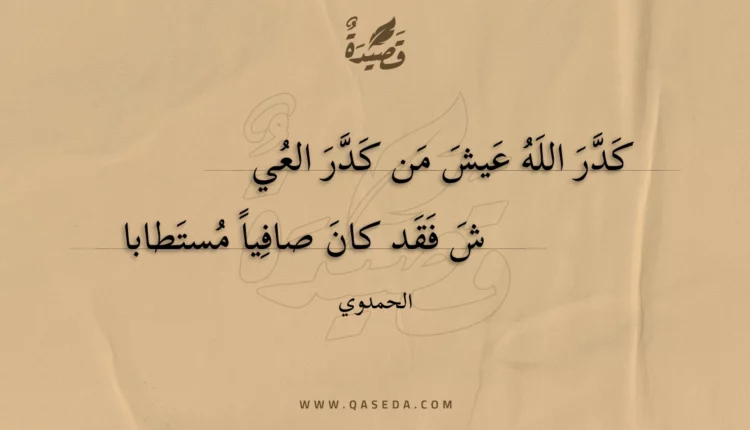 قَصِيدَةٌ
كَدَّرَ اللَهُ عَيشَ مَن كَدَّرَ العُي
شَ فَقَد كانَ صافِياً مُستَطابا
الحمدوي
WWW.QASEDA.COM